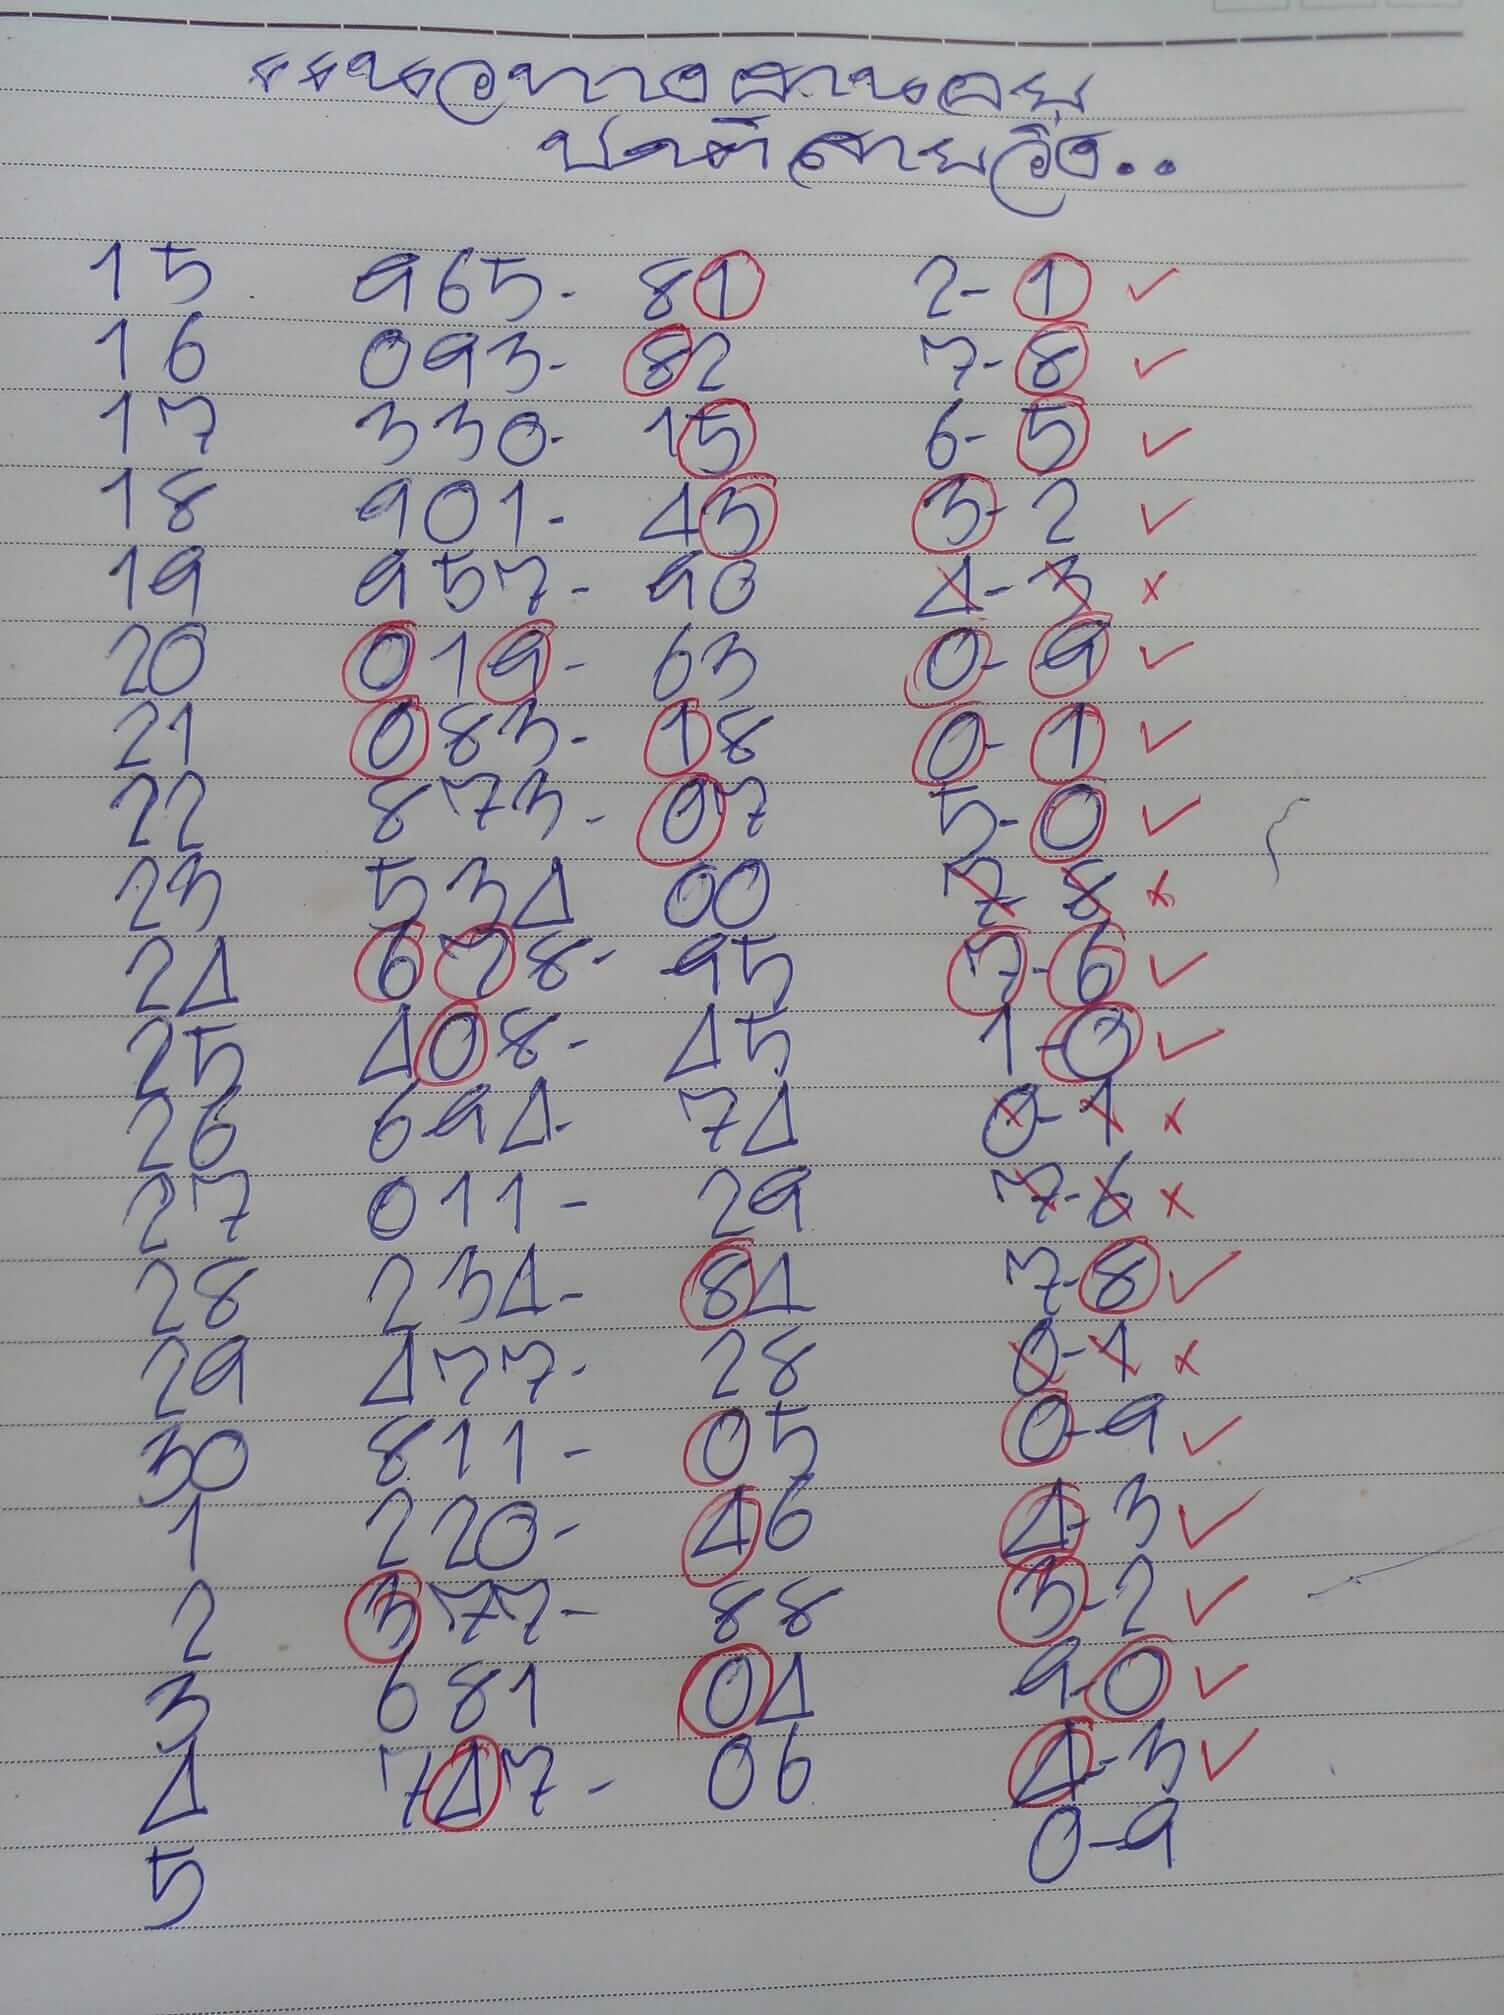 แนวทางฮานอย
ปกติ สายวิ่ง..
15 965- 81 2-1 ✓
16 093- 82 7-8 ✓
17 330- 15 6-5 ✓
18 901- 43 3-2 ✓
19 957- 90 4-3 x
20 019- 63 0-9 ✓
21 083- 18 0-1 ✓
22 873- 07 5-0 ✓
23 534 00 7-8 x
24 678- 95 7-6 ✓
25 408- 45 1-0 ✓
26 694- 74 0-1 x
27 011- 29 7-6 x
28 234- 84 7-8 ✓
29 477- 28 0-1 x
30 811- 05 0-9 ✓
1 220- 46 4-3 ✓
2 377- 88 3-2 ✓
3 681 04 9-0 ✓
4 747- 06 4-3 ✓
5 0-9